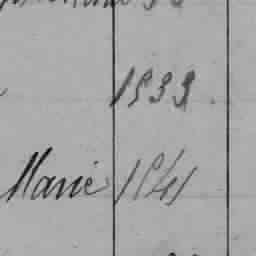 1833
Marie 1841